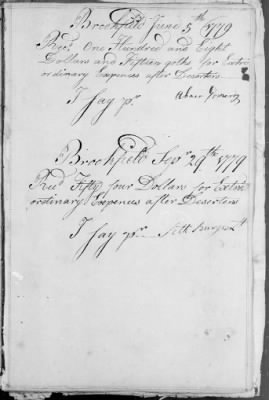 Brookfield June 5th 1779
Recd One Hundred and Eight
Dollars and Fifteen 90ths for Extra
ordinary Expences after Deserters
I say pr
Brookfield Sepr 29th 1779
Recd Fifty four Dollars for Extra
ordinary Expences after Deserters
I say pr Seth